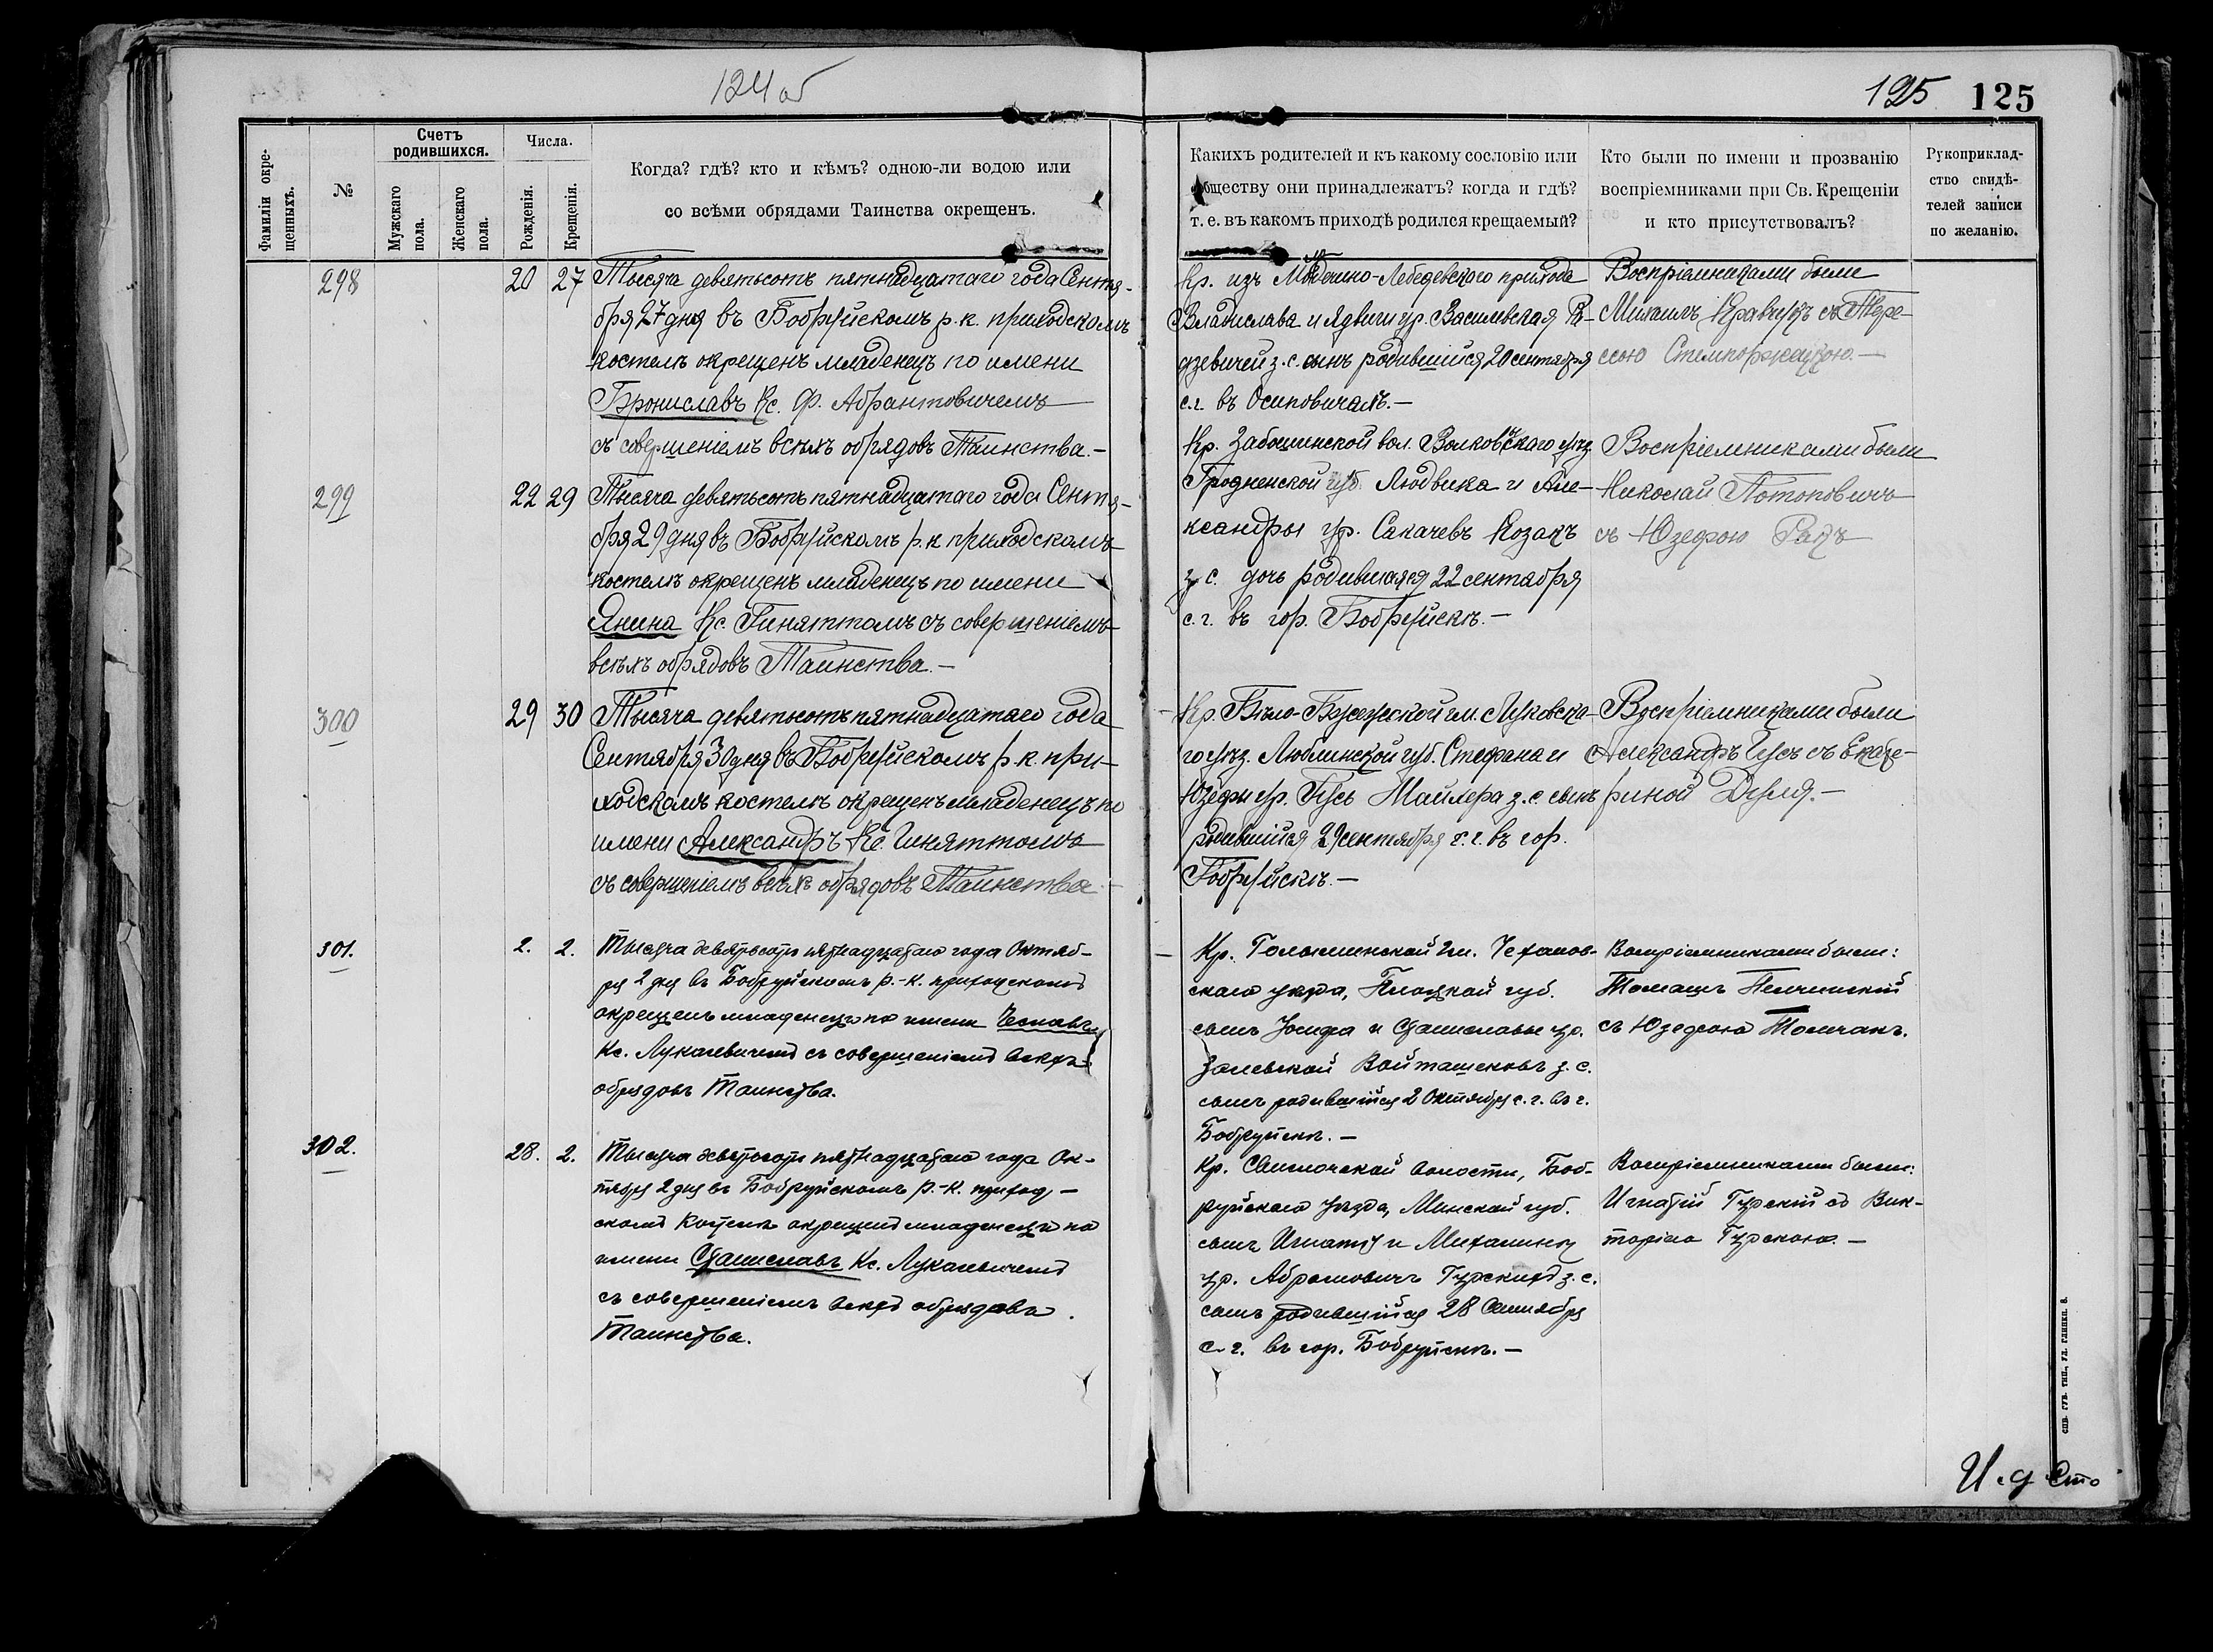 124 об
125 125
Фамиліи окре-
щенныхъ.
№
Счетъ
родившихся.
Мужскаго
пола.
Женскаго
пола.
Числа.
Рожденія.
Крещенія.
Когда? гдѣ? кто и кѣмъ? одною-ли водою или
со всѣми обрядами Таинства окрещенъ.
Какихъ родителей и къ какому сословію или
обществу они принадлежатъ? когда и гдѣ?
т. е. въ какомъ приходѣ родился крещаемый?
Кто были по имени и прозванію
воспріемниками при Св. Крещеніи
и кто присутствовалъ?
Рукоприклад-
ство свидѣ-
телей записи
по желанію.
298
20 27
Тысяча девятьсотъ пятнадцатаго года Сентя-
бря 27 дня въ Бобруйскомъ р. к. приходскомъ
костелѣ окрещенъ младенецъ по имени
Брониславъ Кс. Ф. Абрантовичемъ
съ совершеніемъ всѣхъ обрядовъ Таинства.—
Кр. изъ Лебедевскаго прихода
Владислава и Ядвиги ур. Василевская Ра-
дзевичей з. с. сынъ родившійся 20 сентября
с. г. въ Осиповичахъ.—
Воспріемниками были
Михаилъ Кравчукъ съ Тере-
сою
299
22 29
Тысяча девятьсотъ пятнадцатаго года Сентя-
бря 29 дня въ Бобруйскомъ р. к. приходскомъ
костелѣ окрещенъ младенецъ по имени
Янина Кс. Гиняттомъ съ совершеніемъ
всѣхъ обрядовъ Таинства.—
Кр. вол. Волковскаго уѣз.
Гродненской губ. Людвика и Але-
ксандры ур. Сакачевъ Козакъ
з. с. дочь родившаяся 22 сентября
с. г. въ гор. Бобруйскѣ.—
Воспріемниками были
Николай Потоповичъ
съ Юзефою
300
29 30
Тысяча девятьсотъ пятнадцатаго года
Сентября 30 дня въ Бобруйскомъ р. к. при-
ходскомъ костелѣ окрещенъ младенецъ по
имени Александръ Кс. Гиняттомъ
съ совершеніемъ всѣхъ обрядовъ Таинства.—
Кр. гм. Луковска-
го уѣз. Люблинской губ. Стефана и
Юзефы ур. Гусь Майхера з. с. сынъ
родившійся 29 сентября с. г. въ гор.
Бобруйскѣ.—
Воспріемниками были
Александръ Гусь съ Екате-
риной
301.
2. 2.
Тысяча девятьсотъ пятнадцатаго года Октяб-
ря 2 дня въ Бобруйскомъ р.-к. приходскомъ
окрещенъ младенецъ по имени Чеславъ
Кс. Лукашевичемъ съ совершеніемъ всѣхъ
обрядовъ Таинства.
Кр. Голыминской гм. Чеханов-
скаго уѣзда, Плоцкой губ.
сынъ Іосифа и Станиславы ур.
Залевской з. с.
сынъ родившійся 2 Октября с. г. въ г.
Бобруйскѣ.—
Воспріемниками были:
Томашъ
съ Юзефою Томчакъ.
302.
28. 2.
Тысяча девятьсотъ пятнадцатаго года Ок-
тября 2 дня въ Бобруйскомъ р.-к. приход-
скомъ костелѣ окрещенъ младенецъ по
имени Станиславъ Кс. Лукашевичемъ
съ совершеніемъ всѣхъ обрядовъ
Таинства.
Кр. Свислочской волости, Боб-
руйскаго уѣзда, Минской губ.
сынъ Игнатія и Михалины
ур. Абрамовичъ Гурскихъ з. с.
сынъ родившійся 28 Сентября
с. г. въ гор. Бобруйскѣ.—
Воспріемниками были:
Игнатій Гурскій съ Вик-
торіею Гурскою.—
И. д Сто